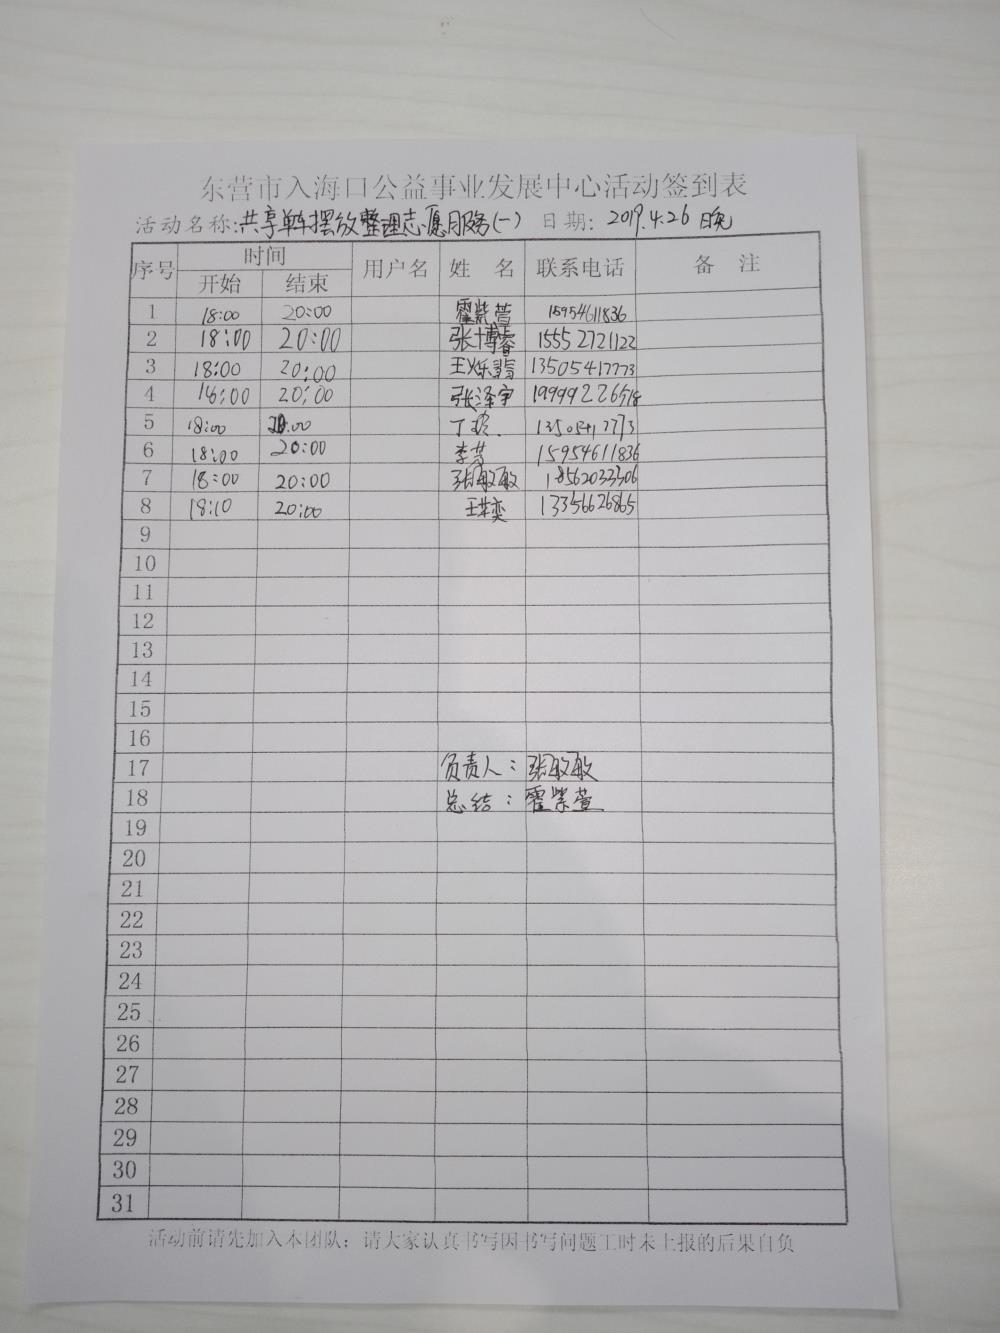 东营市入海口公益事业发展中心活动签到表
活动名称:共享单车摆放整理志愿服务(一) 日期: 2019.4.26 晚
序号 时间 用户名 姓 名 联系电话 备 注
开始 结束
1 18:00 20:00 霍紫萱 15954611836
2 18:00 20:00 张博睿 15552721122
3 18:00 20:00 王烁翡 13505417773
4 18:00 20:00 张泽宇 19999226518
5 18:00 20:00 丁 13505417773
6 18:00 20:00 李芳 15954611836
7 18:00 20:00 张敏敏 18562033306
8 18:10 20:00 王奕 13356626865
9
10
11
12
13
14
15
16
17 负责人:张敏敏
18 总结:霍紫萱
19
20
21
22
23
24
25
26
27
28
29
30
31
活动前请先加入本团队;请大家认真书写因书写问题工时未上报的后果自负